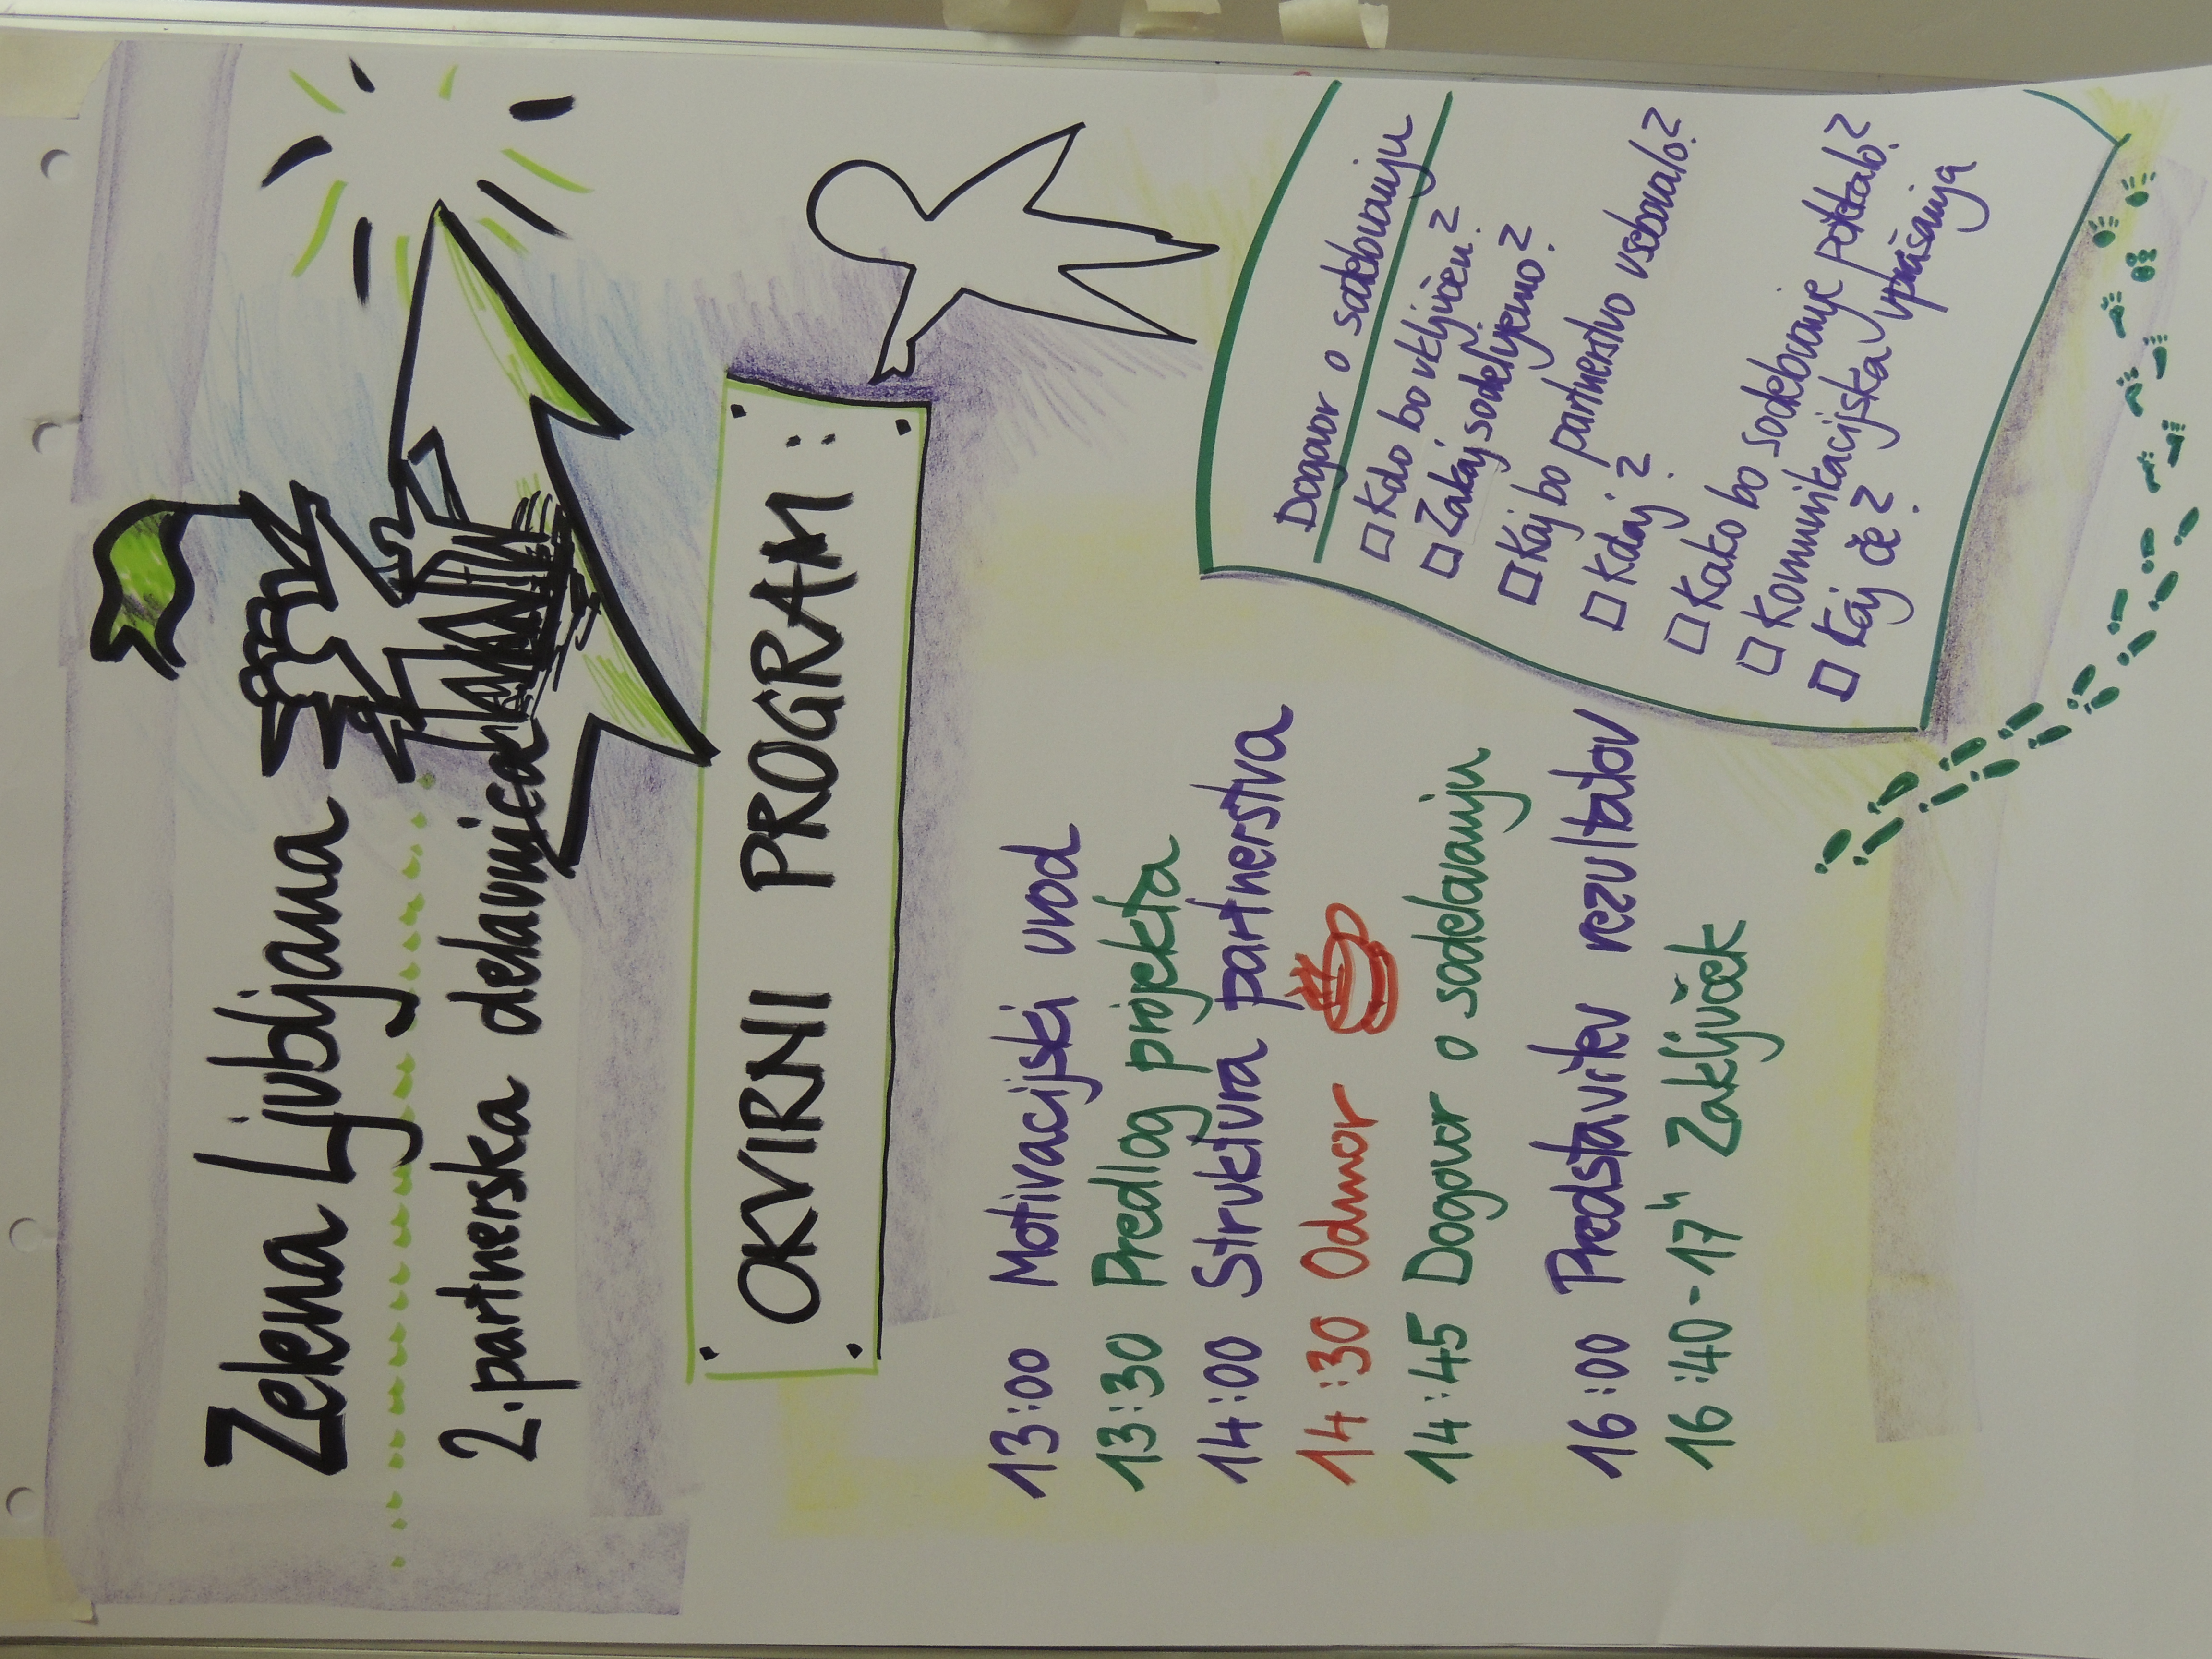 Zelena Ljubljana
2. partnerska delavnica
OKVIRNI PROGRAM:
13:00 Motivacijski uvod
13:30 Predlog projekta
14:00 Struktura partnerstva
14:30 Odmor
14:45 Dogovor o sodelovanju
16:00 Predstavitev rezultatov
16:40-17h Zaključek
Dogovor o sodelovanju
Kdo bo vključen?
Zakaj sodelujemo?
Kaj bo partnerstvo vsebovalo?
Kdaj?
Kako bo sodelovanje potekalo?
Komunikacijska vprašanja
Kaj če?